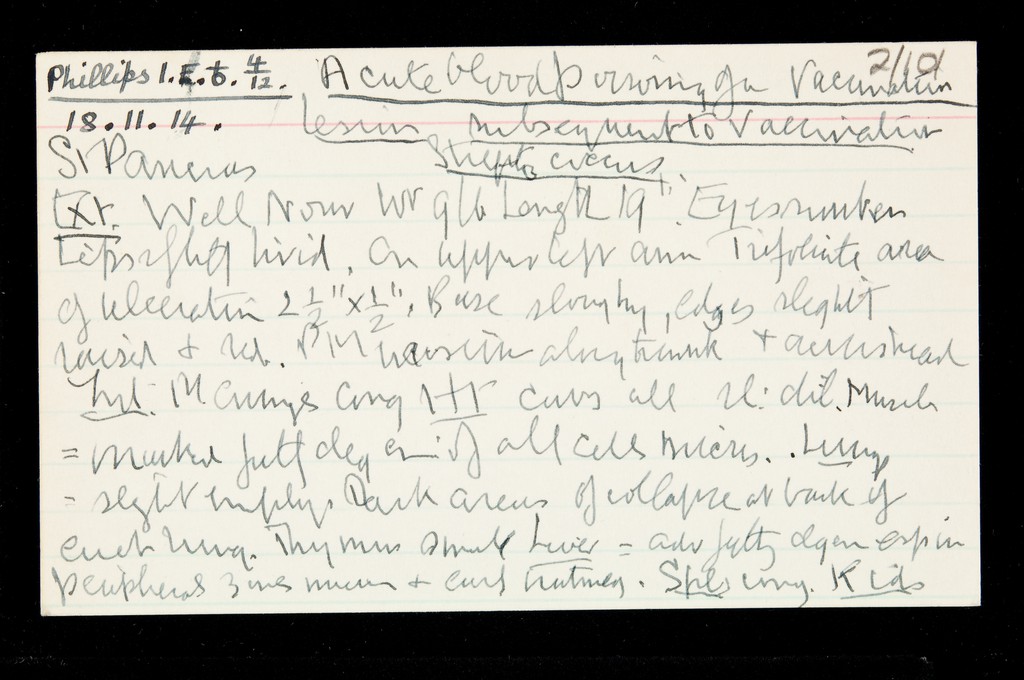 2/101
Phillips I.E.t. 4/12. Acute blood poisoning of a Vaccination
18.11.14. Lesion subsequent to Vaccination
St Pancras Streptococcus
Ext. Well Nour Wt 9lb Length 19". Eyes sunken
Lips slight livid, On upper left arm Trifoliate area
of ulceration 2 1/2" x 1/2". Base sloughy, edges slight
raised & red. PM along trunk + across head
Int. Meninges cong Hr cavs all sl: dil. Muscle
= marked fatty degen of all cells micros. Lungs
= slight emphys Dark areas of collapse at back of
each lung. Thymus small Liver = adv fatty degen esp in
peripheral zones micro + early nutmeg. Spl cong. Kids